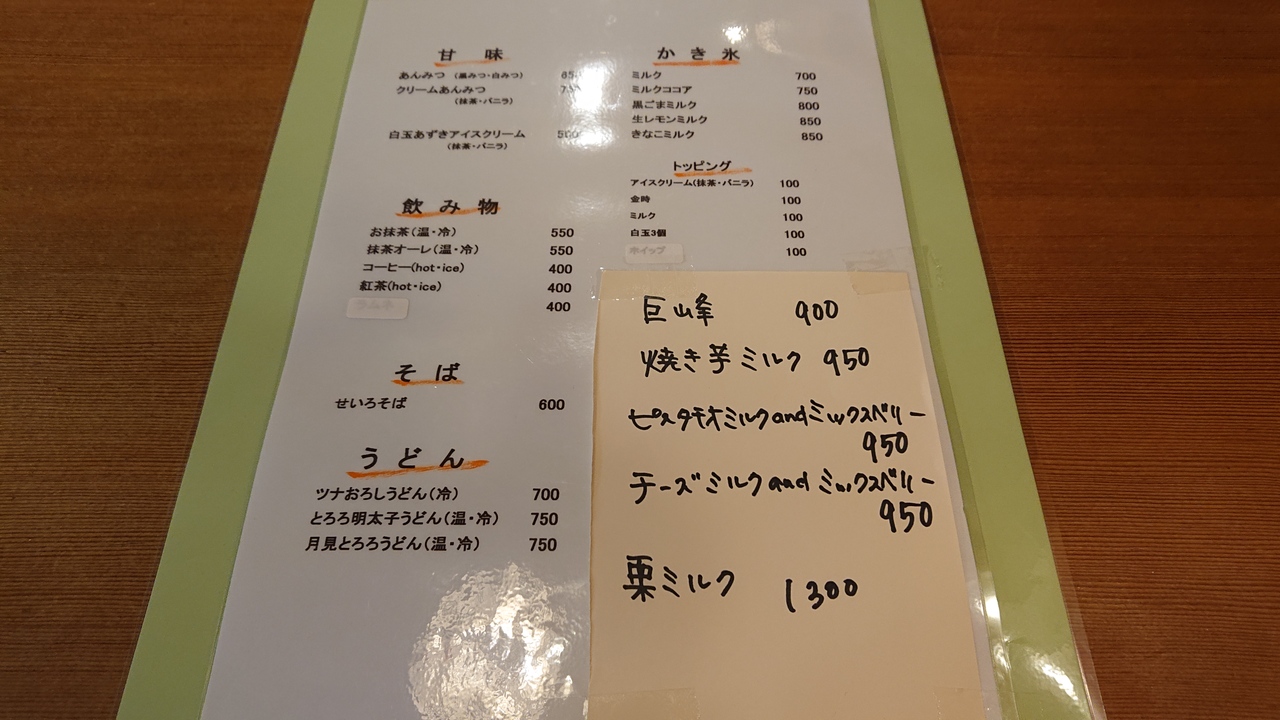 甘味
あんみつ (黒みつ・白みつ) 650
クリームあんみつ
(抹茶・バニラ)
白玉あずきアイスクリーム 500
(抹茶・バニラ)
飲み物
お抹茶(温・冷) 550
抹茶オーレ(温・冷) 550
コーヒー(hot・ice) 400
紅茶(hot・ice) 400
400
そば
せいろそば 600
うどん
ツナおろしうどん(冷) 700
とろろ明太子うどん(温・冷) 750
月見とろろうどん(温・冷) 750
かき氷
ミルク 700
ミルクココア 750
黒ごまミルク 800
生レモンミルク 850
きなこミルク 850
トッピング
アイスクリーム(抹茶・バニラ) 100
金時 100
ミルク 100
白玉3個 100
ホイップ 100
巨山峰 900
焼き芋ミルク 950
ピスタチオミルクandミックスベリー
950
チーズミルクandミックスベリー
950
栗ミルク 1300